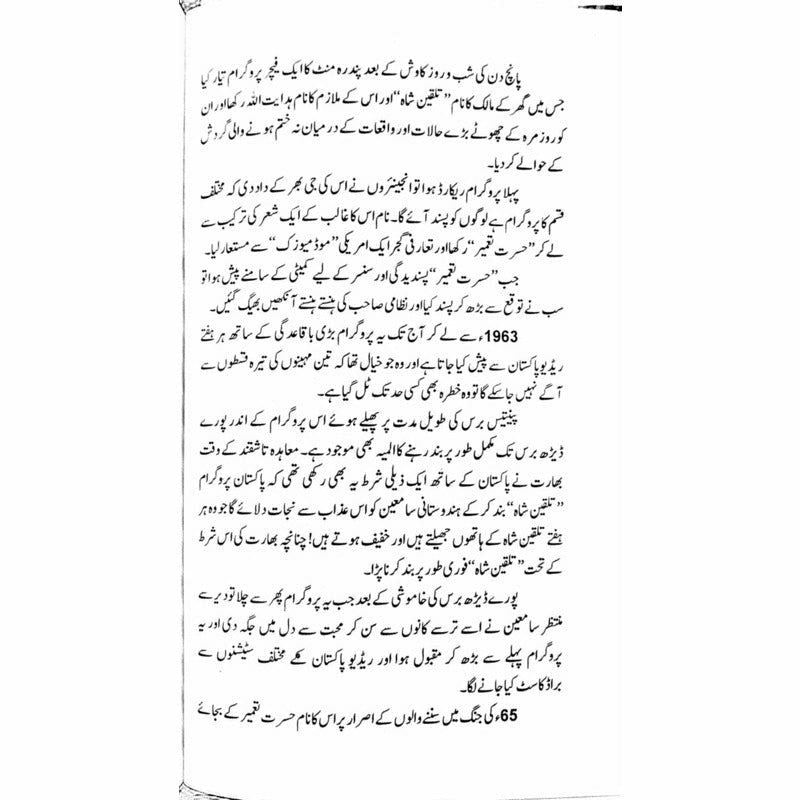 پانچ دن کی شب و روز کاوش کے بعد پندرہ منٹ کا ایک فیچر پروگرام تیار کیا
جس میں گھر کے مالک کا نام ”تلقین شاہ“ اور اس کے ملازم کا نام ہدایت اللہ رکھا اور ان
کو روزمرہ کے چھوٹے بڑے حالات اور واقعات کے درمیان نہ ختم ہونے والی گردش
کے حوالے کر دیا۔
پہلا پروگرام ریکارڈ ہوا تو انجینئروں نے اس کی جی بھر کے داد دی کہ مختلف
قسم کا پروگرام ہے لوگوں کو پسند آئے گا۔ نام اس کا غالب کے ایک شعر کی ترکیب سے
لے کر ”حسرت تعمیر“ رکھا اور تعارفی گجر ایک امریکی ”موڈ میوزک“ سے مستعار لیا۔
جب ”حسرت تعمیر“ پسندیدگی اور سنسر کے لیے کمیٹی کے سامنے پیش ہوا تو
سب نے توقع سے بڑھ کر پسند کیا اور نظامی صاحب کی ہنستے ہنستے آنکھیں بھیگ گئیں۔
1963ء سے لے کر آج تک یہ پروگرام بڑی باقاعدگی کے ساتھ ہر ہفتے
ریڈیو پاکستان سے پیش کیا جاتا ہے اور وہ جو خیال تھا کہ تین مہینوں کی تیرہ قسطوں سے
آگے نہیں جا سکے گا تو وہ خطرہ بھی کسی حد تک ٹل گیا ہے۔
پینتیس برس کی طویل مدت پر پھیلے ہوئے اس پروگرام کے اندر پورے
ڈیڑھ برس تک مکمل طور پر بند رہنے کا المیہ بھی موجود ہے۔ معاہدہ تاشقند کے وقت
بھارت نے پاکستان کے ساتھ ایک ذیلی شرط یہ بھی رکھی تھی کہ پاکستان پروگرام
”تلقین شاہ“ بند کر کے ہندوستانی سامعین کو اس عذاب سے نجات دلائے گا جو وہ ہر
ہفتے تلقین شاہ کے ہاتھوں جھیلتے ہیں اور خفیف ہوتے ہیں! چنانچہ بھارت کی اس شرط
کے تحت ”تلقین شاہ“ فوری طور پر بند کرنا پڑا۔
پورے ڈیڑھ برس کی خاموشی کے بعد جب یہ پروگرام پھر سے چلا تو دیر سے
منتظر سامعین نے اسے ترسے کانوں سے سن کر محبت سے دل میں جگہ دی اور یہ
پروگرام پہلے سے بڑھ کر مقبول ہوا اور ریڈیو پاکستان کے مختلف سٹیشنوں سے
براڈکاسٹ کیا جانے لگا۔
65ء کی جنگ میں سننے والوں کے اصرار پر اس کا نام حسرت تعمیر کے بجائے